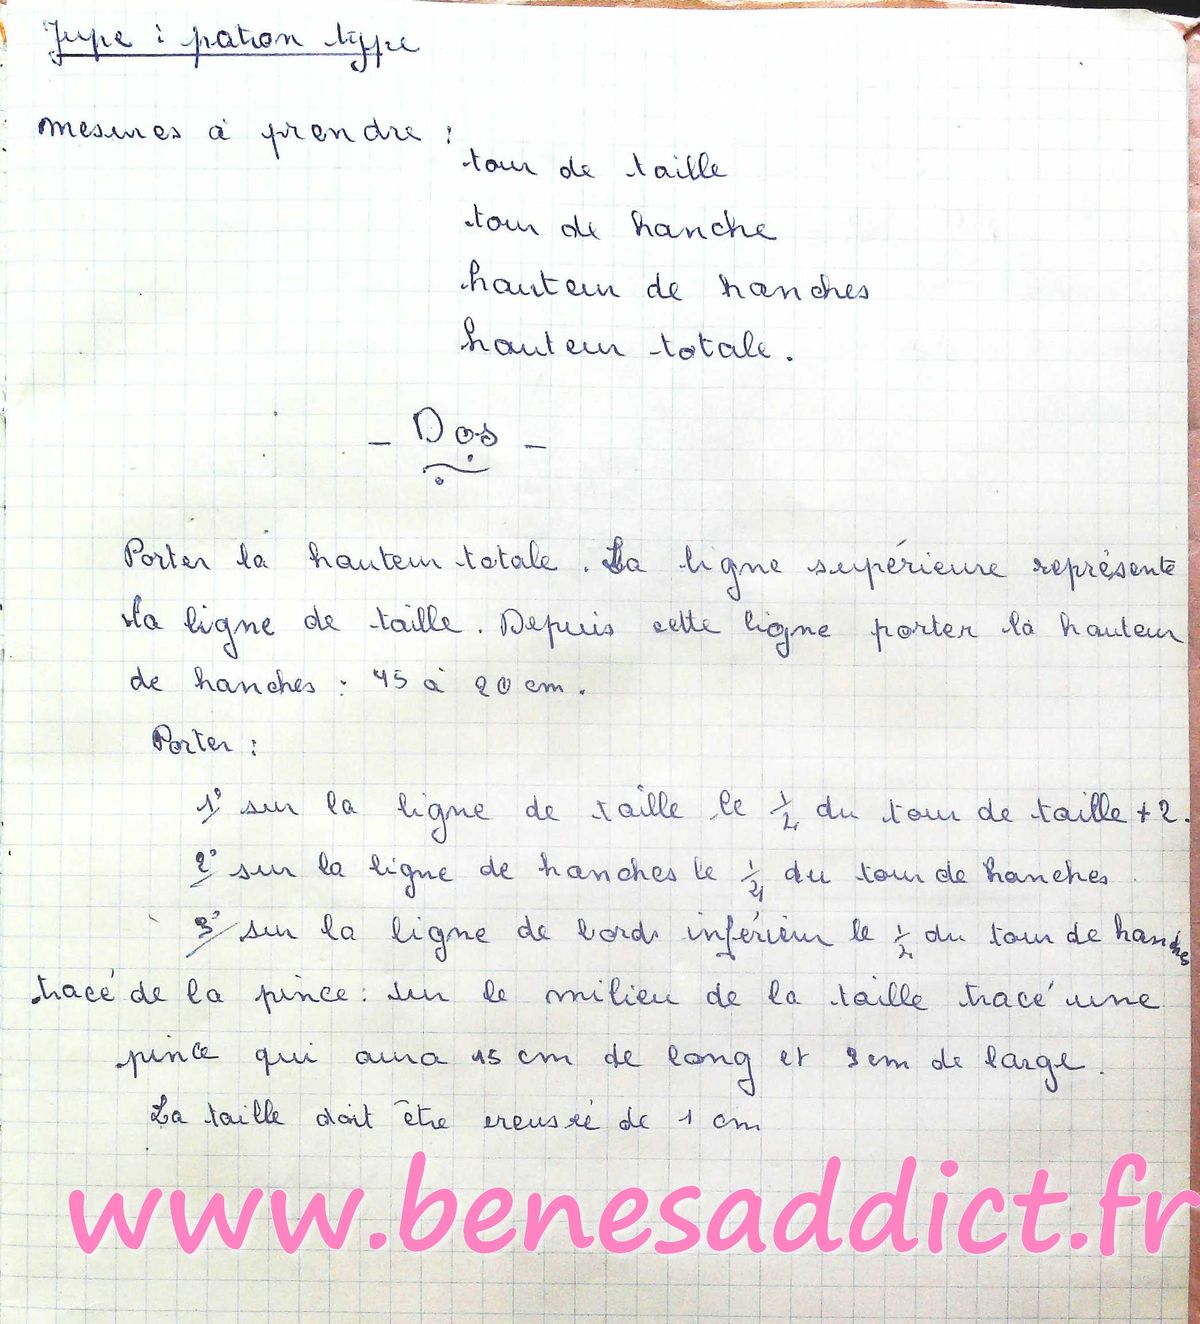 Jupe : patron type
mesures à prendre :
tour de taille
tour de hanche
hauteur de hanches
hauteur totale.
- Dos -
Porter la hauteur totale. La ligne supérieure représente
la ligne de taille. Depuis cette ligne porter la hauteur
de hanches : 15 à 20 cm.
Porter :
1° sur la ligne de taille le 1/2 du tour de taille + 2.
2° sur la ligne de hanches le 1/4 du tour de hanches
3° sur la ligne de bord inférieur le 1/2 du tour de hanches
tracé de la pince : sur le milieu de la taille tracé une
pince qui aura 15 cm de long et cm de large.
La taille doit être creusée de 1 cm
www.benesaddict.fr